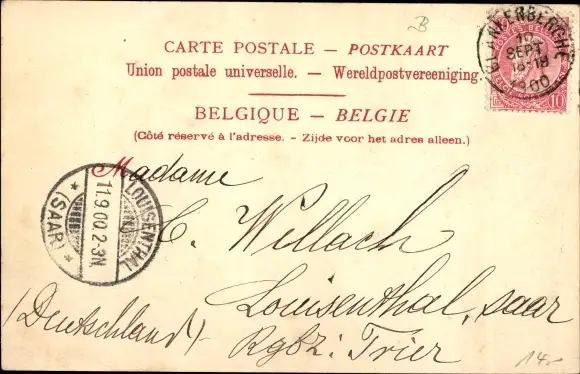 B
CARTE POSTALE — POSTKAART
Union postale universelle. — Wereldpostvereeniging.
BELGIQUE — BELGIE
(Côté réservé à l'adresse. - Zijde voor het adres alleen.)
BLANKENBERGHE
10
SEPT
18-19
1900
10
Madame
C. Willach
Louisenthal, Saar
Rgbz: Trier
(Deutschland)
LOUISENTHAL
11.9.00.2-3N.
* (SAAR) *
14.-